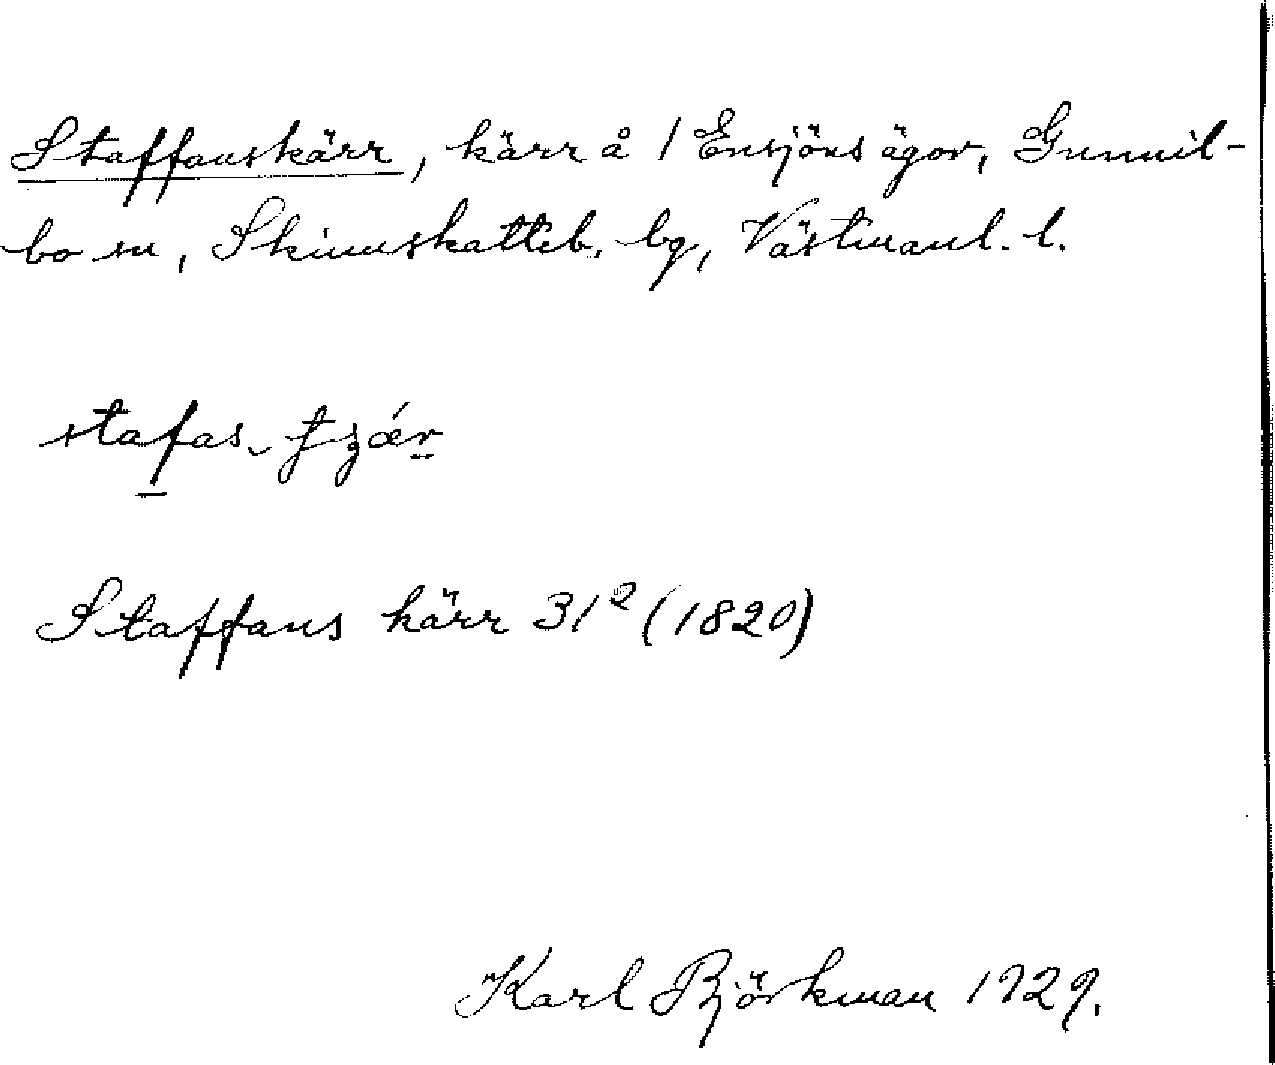 Staffanskärr, kärr å 1 Ensjöns ägor, Gunnil-
bo sn, Skinnskatteb. bg, Västmanl. l.
stafas-
Staffans kärr 31² (1820)
Karl Björkman 1929.